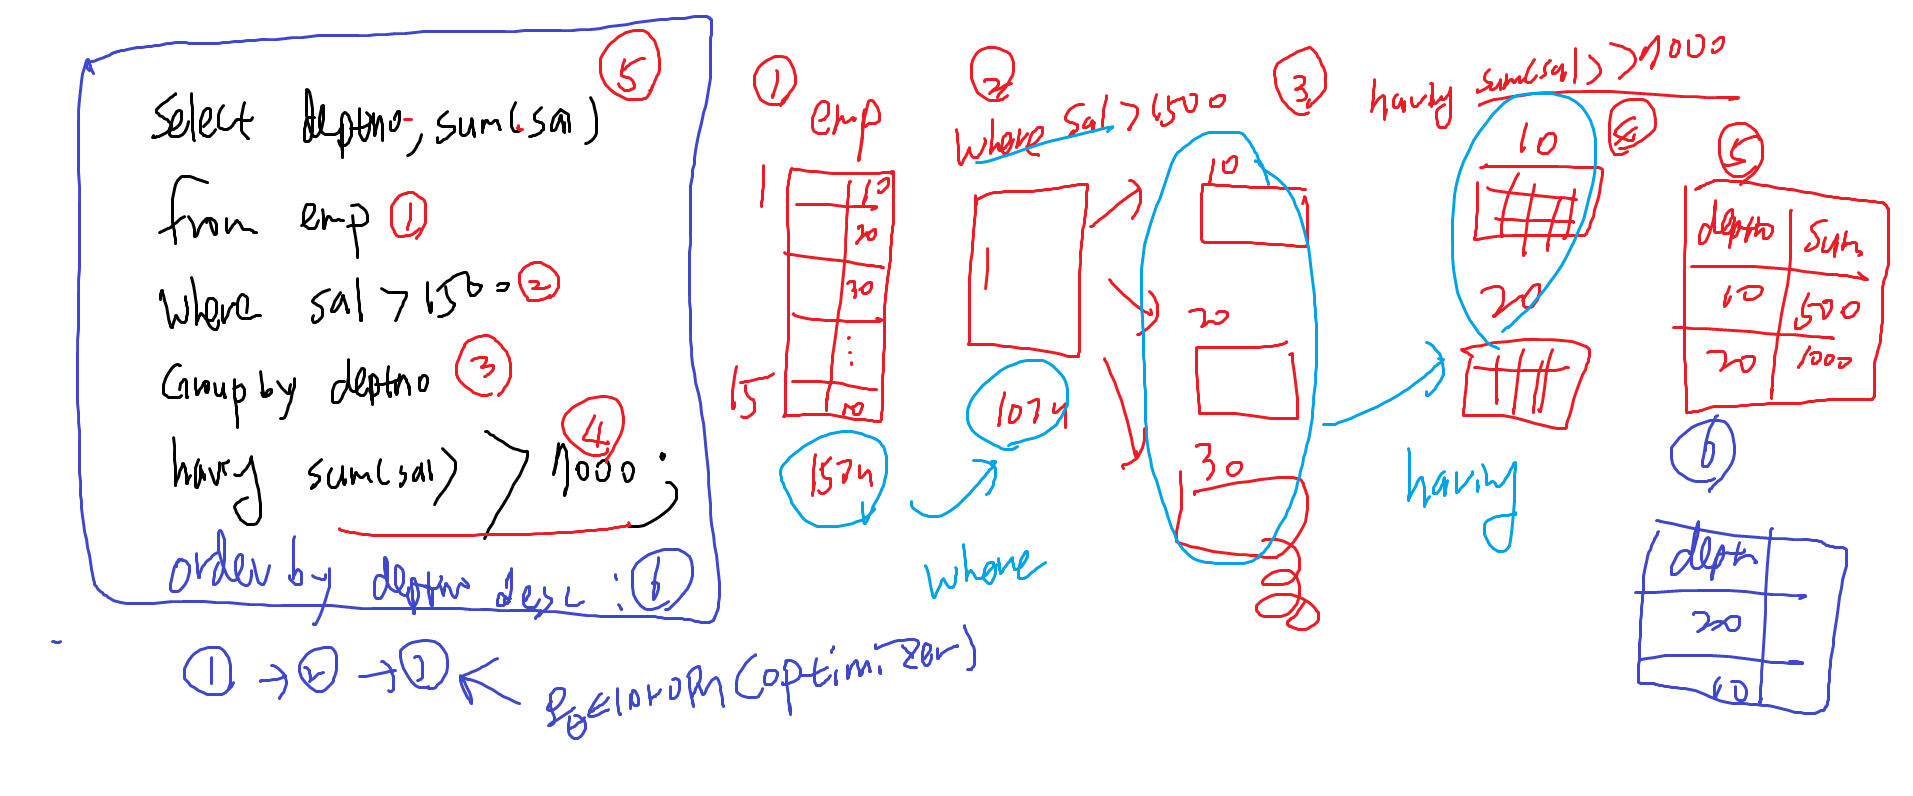 ⑤
Select deptno, sum(sal)
from emp ①
where sal > 1500 ②
Group by deptno ③
having sum(sal) > 1000 ; ④
order by deptno desc ; ⑥
① → ② → ③ ← 옵티마이저 (optimizer)
①
emp
1
10
20
30
⋮
15
10
15개
where
②
where sal > 1500
10개
③
10
20
30
having
having sum(sal) > 1000
④
10
20
⑤
deptno sum
10 500
20 1000
⑥
deptn
20
10